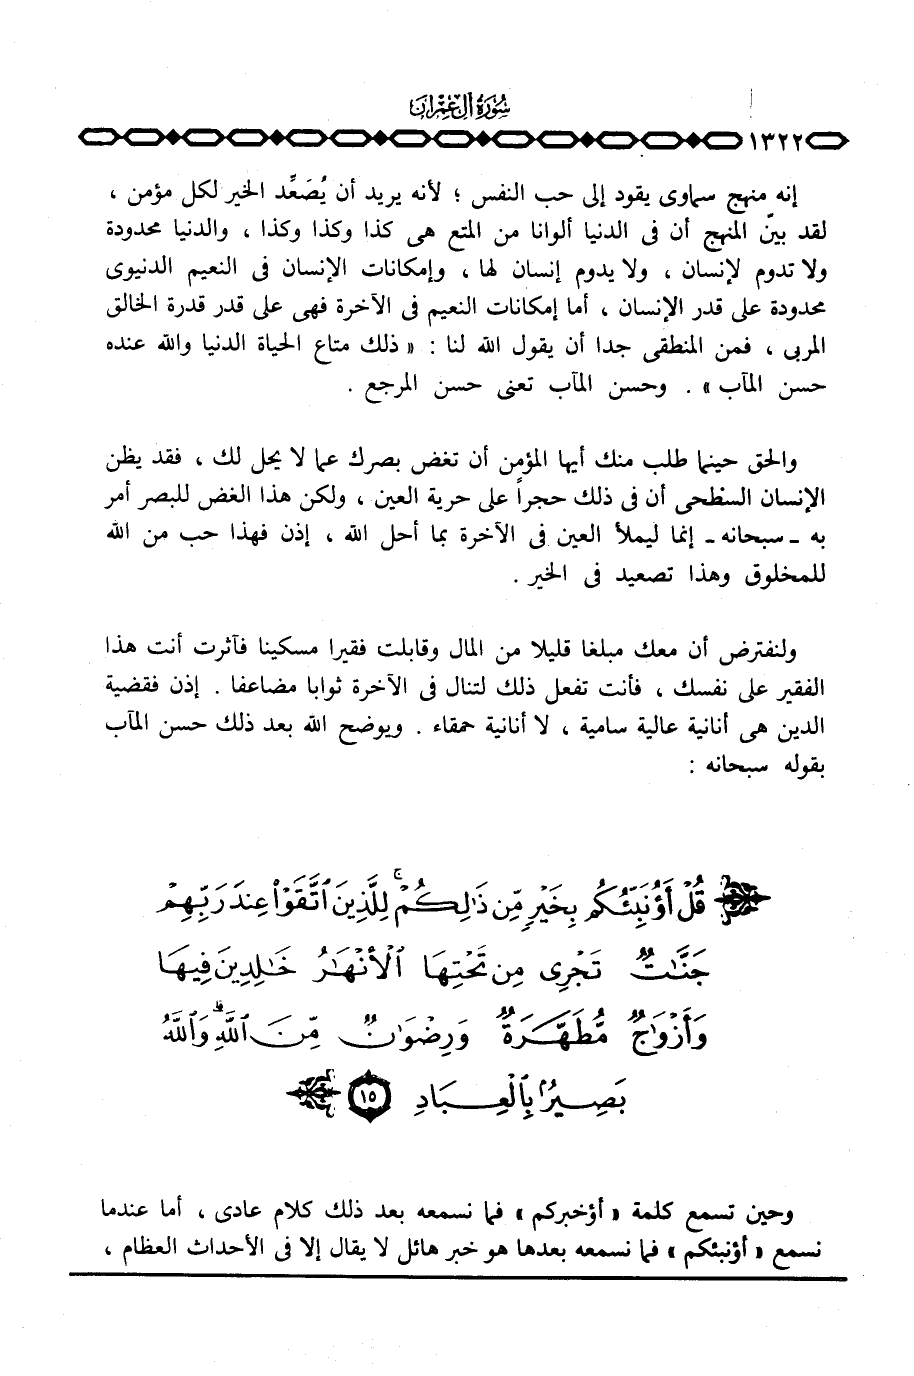 سُورَةُ آلِ عِمْرَانَ
١٣٢٢
إنه منهج سماوى يقود إلى حب النفس ؛ لأنه يريد أن يُصَعِّد الخير لكل مؤمن ،
لقد بينّ المنهج أن فى الدنيا ألوانا من المتع هى كذا وكذا وكذا ، والدنيا محدودة
ولا تدوم لإنسان ، ولا يدوم إنسان لها ، وإمكانات الإنسان فى النعيم الدنيوى
محدودة على قدر الإنسان ، أما إمكانات النعيم فى الآخرة فهى على قدر قدرة الخالق
المربى ، فمن المنطقى جدا أن يقول الله لنا : « ذلك متاع الحياة الدنيا والله عنده
حسن المآب » . وحسن المآب تعنى حسن المرجع .
والحق حينما طلب منك أيها المؤمن أن تغض بصرك عما لا يحل لك ، فقد يظن
الإنسان السطحى أن فى ذلك حجراً على حرية العين ، ولكن هذا الغض للبصر أمر
به ـ سبحانه ـ إنما ليملأ العين فى الآخرة بما أحل الله ، إذن فهذا حب من الله
للمخلوق وهذا تصعيد فى الخير .
ولنفترض أن معك مبلغا قليلا من المال وقابلت فقيرا مسكينا فآثرت أنت هذا
الفقير على نفسك ، فأنت تفعل ذلك لتنال فى الآخرة ثوابا مضاعفا . إذن فقضية
الدين هى أنانية عالية سامية ، لا أنانية حمقاء . ويوضح الله بعد ذلك حسن المآب
بقوله سبحانه :
قُلْ أَؤُنَبِّئُكُم بِخَيْرٍ مِّن ذَٰلِكُمْ ۚ لِلَّذِينَ اتَّقَوْا عِندَ رَبِّهِمْ
جَنَّٰتٌ تَجْرِى مِن تَحْتِهَا الْأَنْهَٰرُ خَٰلِدِينَ فِيهَا
وَأَزْوَٰجٌ مُّطَهَّرَةٌ وَرِضْوَٰنٌ مِّنَ اللَّهِ ۗ وَاللَّهُ
بَصِيرٌۢ بِالْعِبَادِ ١٥
وحين تسمع كلمة « أؤخبركم » فما نسمعه بعد ذلك كلام عادى ، أما عندما
نسمع « أؤنبئكم » فما نسمعه بعدها هو خبر هائل لا يقال إلا فى الأحداث العظام ،